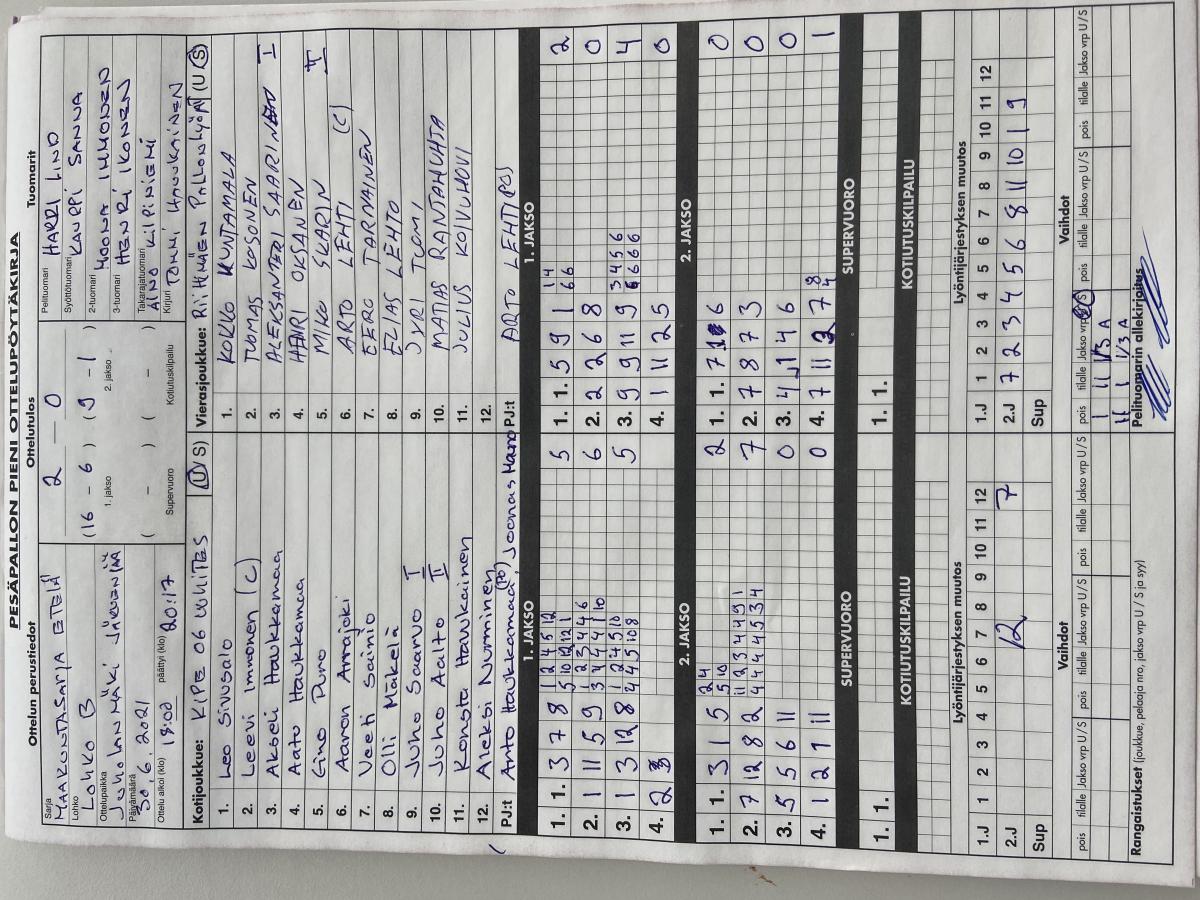 PESÄPALLON PIENI OTTELUPÖYTÄKIRJA
Ottelun perustiedot
Sarja
MAAKUNTASARJA ETELÄ
Lohko
LOHKO B
Ottelupaikka
JUHOLANMÄKI JÄRVENPÄÄ
Päivämäärä
30.6.2021
Ottelu alkoi (klo) 19:00 päättyi (klo) 20:17
Ottelutulos
2 — 0
(16 - 6) (9 - 1)
1. jakso 2. jakso
( - ) ( - )
Supervuoro Kotiutuskilpailu
Tuomarit
Pelituomari HARRI LIND
Syöttötuomari KAUPPI SANNA
2-tuomari NOONA IMMONEN
3-tuomari HENRI IKONEN
Takarajatuomari AINO KILPINIEMI
Kirjuri TONI HAUKKAINEN
Kotijoukkue: KIPE 06 WHITES (U/S)
1. Leo Sivusalo
2. Leevi Immonen (C)
3. Akseli Haukkamaa
4. Aato Haukkamaa
5. Eino Puro
6. Aaron Arrajoki
7. Veeti Sainio
8. Olli Mäkelä
9. Juho Saarvo I
10. Juho Aalto II
11. Konsta Haukkainen
12. Aleksi Nurminen
PJ:t Anto Haukkamaa (PJ), Joonas Haro
Vierasjoukkue: RiiHiMÄEN PALLONLYÖJÄT (U/S)
1. KOKKO KUNTAMALA
2. TUOMAS KOSONEN
3. ALEKSANTERI SAARINEN I
4. HARRI OKSANEN
5. MIKO SKARIN II
6. ARTO LEHTI (C)
7. EERO TARVAINEN
8. ELIAS LEHTO
9. JYRI TUOMI
10. MATIAS RANTAHUHTA
11. JULIUS KOIVUHOVI
12.
PJ:t ARTO LEHTI (PJ)
1. JAKSO
1. 1. 3 7 8 1 2 4 5 12 5
5 10 12 12 1
2. 1 11 5 9 1 2 3 4 4 6 6
3 4 4 4 1 10
3. 1 3 12 8 1 2 4 5 10 5
2 4 5 10 8
4. 2
1. JAKSO
1. 1. 5 9 1 1 4 2
6 6
2. 2 2 6 8 0
3. 9 9 11 9 3 4 5 6 4
6 6 6 6
4. 1 11 2 5 0
2. JAKSO
1. 1. 3 1 5 2 4 2
5 10
2. 7 12 8 2 11 2 3 4 4 9 1 7
4 4 4 4 5 3 4
3. 5 5 6 11 0
4. 1 2 1 11 0
2. JAKSO
1. 1. 7 6 0
2. 7 8 7 3 0
3. 4 1 4 6 0
4. 7 11 2 7 8 1
4
SUPERVUORO
1. 1.
SUPERVUORO
1. 1.
KOTIUTUSKILPAILU
KOTIUTUSKILPAILU
Lyöntijärjestyksen muutos
1.J 1 2 3 4 5 6 7 8 9 10 11 12
2.J 12 7
Sup
Lyöntijärjestyksen muutos
1.J 1 2 3 4 5 6 7 8 9 10 11 12
2.J 7 2 3 4 5 6 8 11 10 1 9
Sup
Vaihdot
pois tilalle Jakso vrp U / S pois tilalle Jakso vrp U / S pois tilalle Jakso vrp U / S
Vaihdot
pois tilalle Jakso vrp U / S pois tilalle Jakso vrp U / S pois tilalle Jakso vrp U / S
1 11 1/3 A
11 1 1/3 A
Rangaistukset (joukkue, pelaaja nro, jakso vrp U / S ja syy)
Pelituomarin allekirjoitus